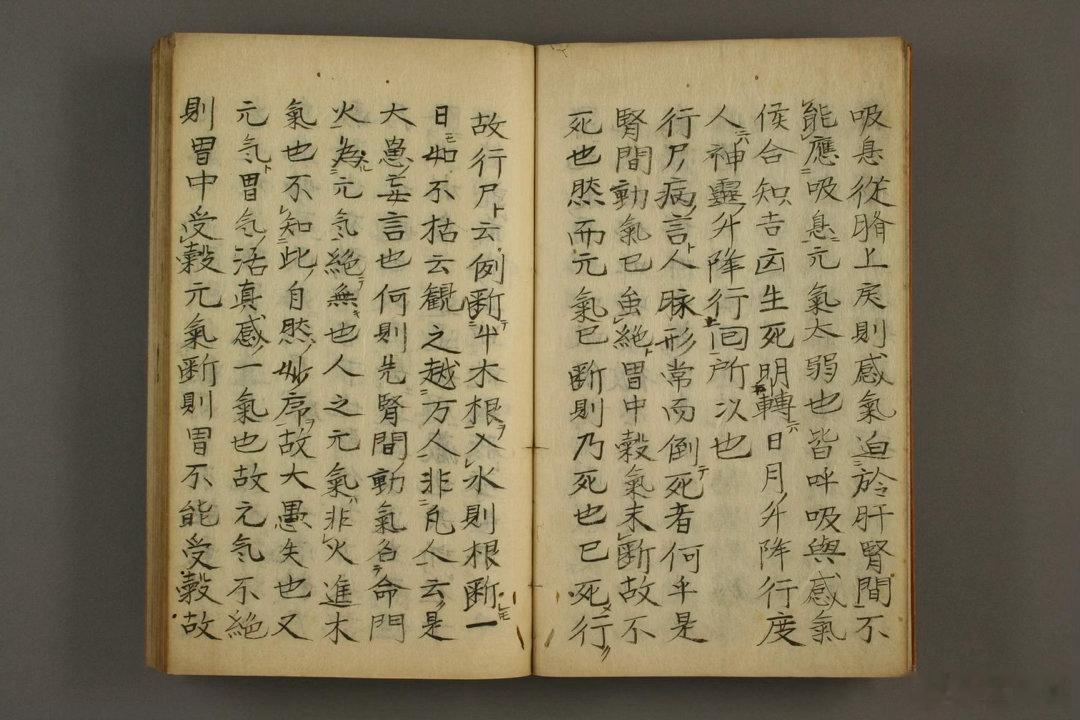 吸息從膌上戻則感氣迫於肝腎間不
能應吸息元氣太弱也皆呼吸與感氣
候合知吉凶生死明轉日月升降行度
人神靈升降行回所以也
行尸病言人脉形常而倒死者何乎是
腎間動氣已虽絶胃中穀氣未断故不
死也然而元氣已断則乃死也已死行
故行尸云例断牛木根入水則根断一
日如不枯云観之越万人非凡人云是
大愚妄言也何則先腎間動氣名命門
火為元気絶無也人之元氣非火進木
氣也不知此自然妙序故大愚失也又
元気胃気活真感一氣也故元気不絶
則胃中受穀元氣断則胃不能受穀故